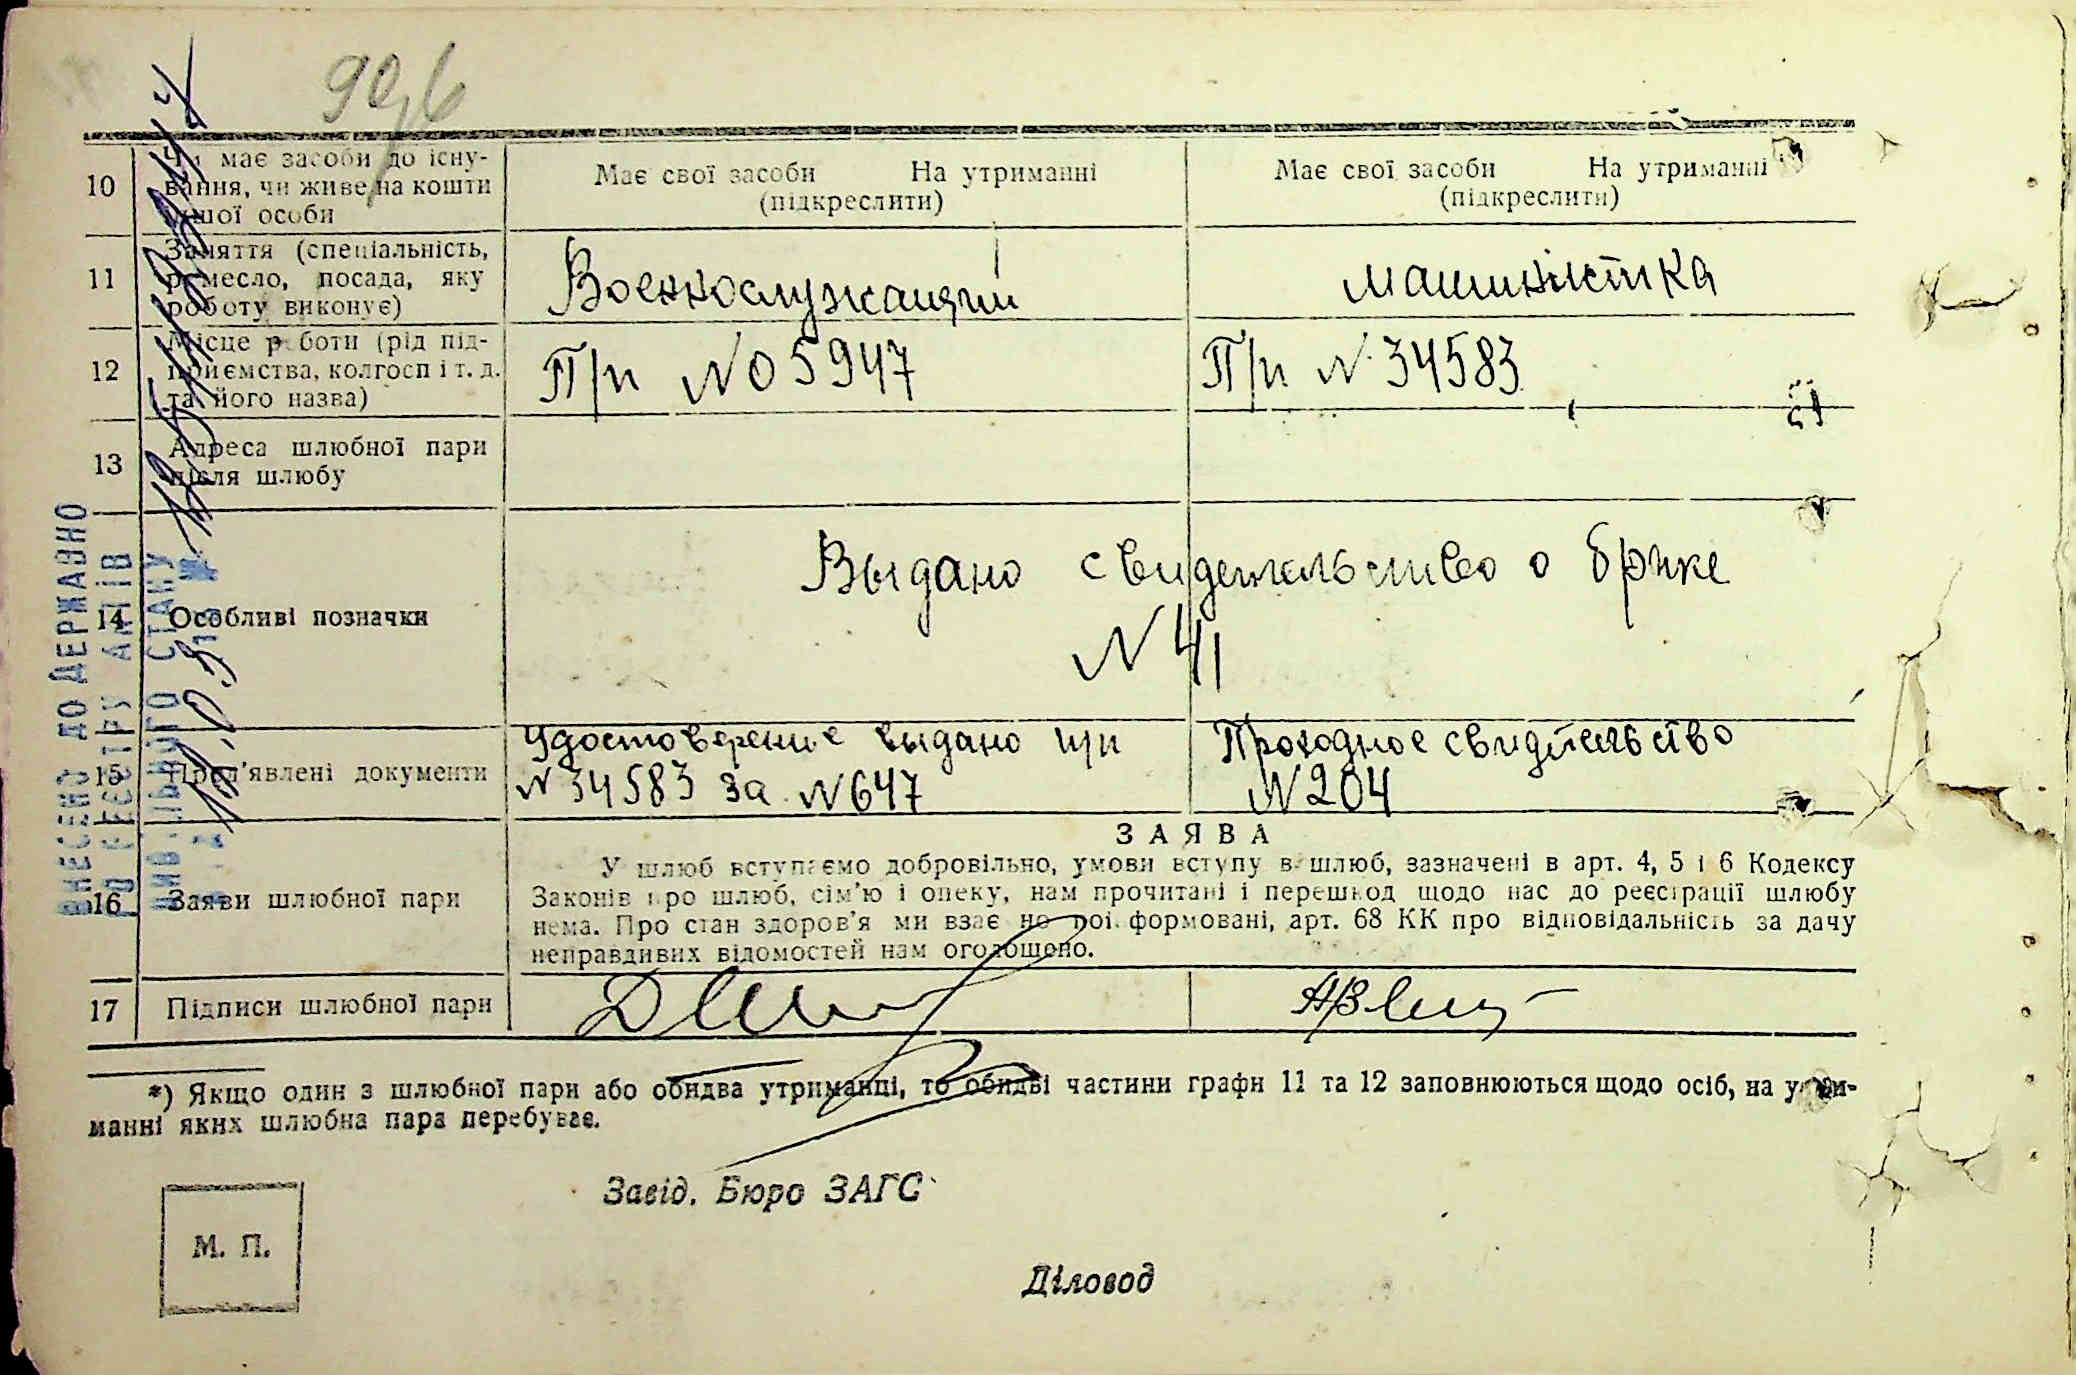 10
Чи має засоби до існу-
вання, чи живе на кошти
іншої особи
Має свої засоби На утриманні
(підкреслити)
Має свої засоби На утриманні
(підкреслити)
11
Заняття (спеціальність,
ремесло, посада, яку
роботу виконує)
Военнослужащий
машинистка
12
Місце роботи (рід під-
приємства, колгосп і т. д.
та його назва)
П/п № 05947
П/п № 34583
13
Адреса шлюбної пари
після шлюбу
14
Особливі позначки
Выдано свидетельство о браке
№ 41
15
Пред'явлені документи
Удостоверение выдано п/п
№ 34583 за № 647
Проходное свидетельство
№ 204
16
Заяви шлюбної пари
ЗАЯВА
У шлюб вступаємо добровільно, умови вступу в шлюб, зазначені в арт. 4, 5 і 6 Кодексу
Законів про шлюб, сім'ю і опеку, нам прочитані і перешкод щодо нас до реєстрації шлюбу
нема. Про стан здоров'я ми взаємно поінформовані, арт. 68 КК про відповідальність за дачу
неправдивих відомостей нам оголошено.
17
Підписи шлюбної пари
*) Якщо один з шлюбної пари або обидва утриманці, то обидві частини графи 11 та 12 заповнюються щодо осіб, на утри-
манні яких шлюбна пара перебуває.
Завід. Бюро ЗАГС
М. П.
Діловод
ВНЕСЕНО ДО ДЕРЖАВНО
ГО РЕЄСТРУ АКТІВ
ЦИВІЛЬНОГО СТАНУ